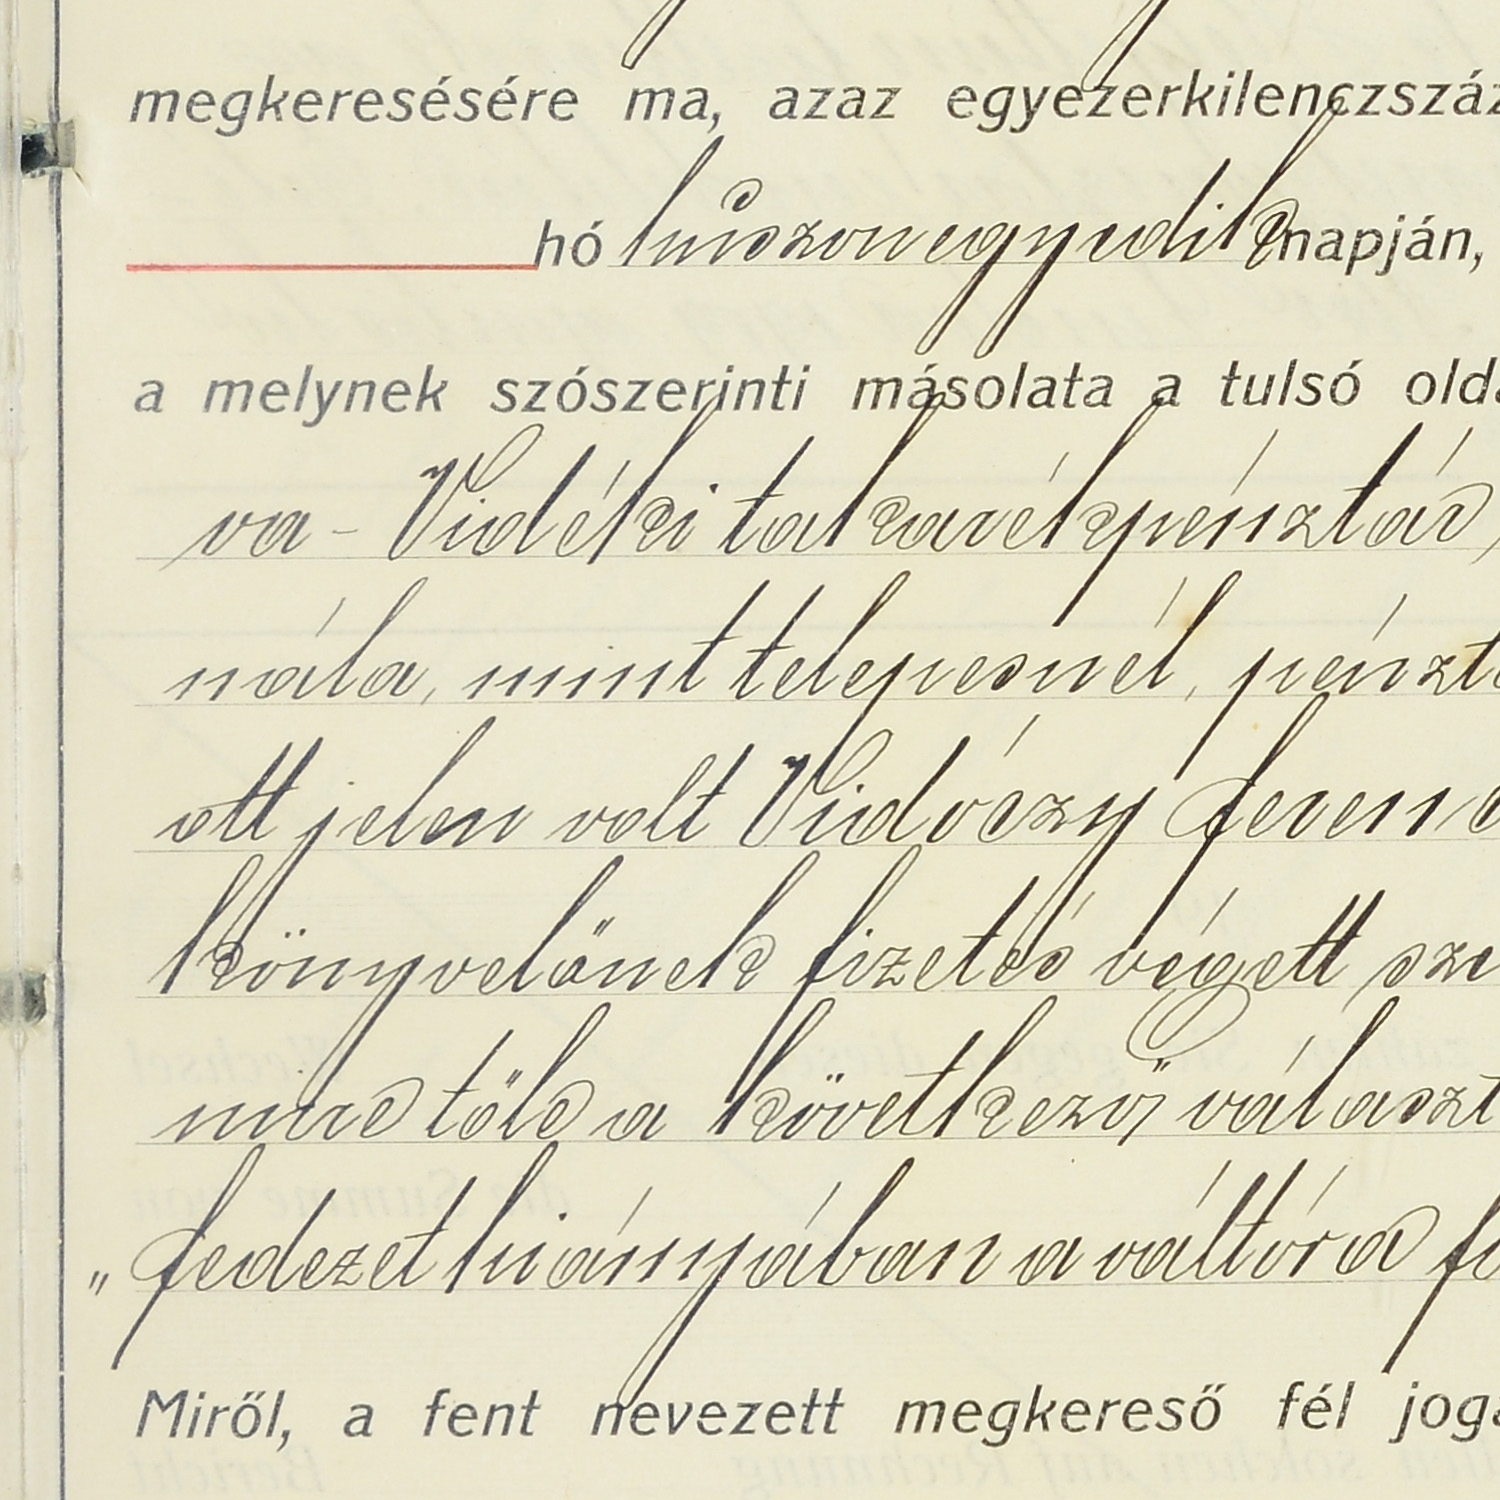 megkeresésére ma, azaz egyezerkilenczszáz
hó huszonegyedik napján,
a melynek szószerinti másolata a tulsó olda
va- Vidéki takarékpénztár,
nála, mint telepesnél, pénzt
ott jelen volt Vidóczy Ferenc
könyvelőnek fizetés végett sze
mire tőle a következő választ
„Fedezet hiányában a váltóra fi
Miről, a fent nevezett megkereső fél joga